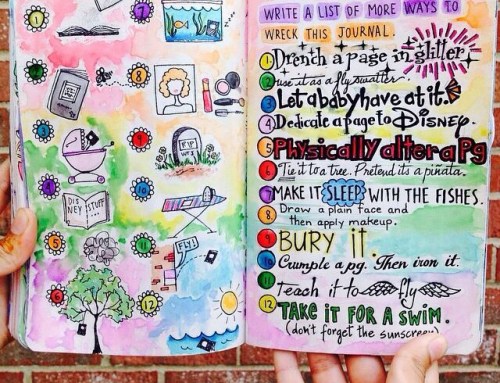 1
7
2
8
3
R I P
WTJ
9
4
10
DIS
NEY
STUFF
5
11
FLY!
6
12
WRITE A LIST OF MORE WAYS TO
WRECK THIS JOURNAL.
1 Drench a page in glitter.
2 use it as a fly swatter.
3 Let a baby have at it.
4 Dedicate a page to DISNEY.
5 Physically alter a Pg
6 Tie it to a tree. Pretend its a pinata.
7 MAKE IT SLEEP WITH THE FISHES.
8 Draw a plain face and
then apply makeup.
9 BURY it.
10 Crumple a pg. Then iron it.
11 Teach it to fly
12 TAKE IT FOR A SWIM.
(don't forget the sunscreen)